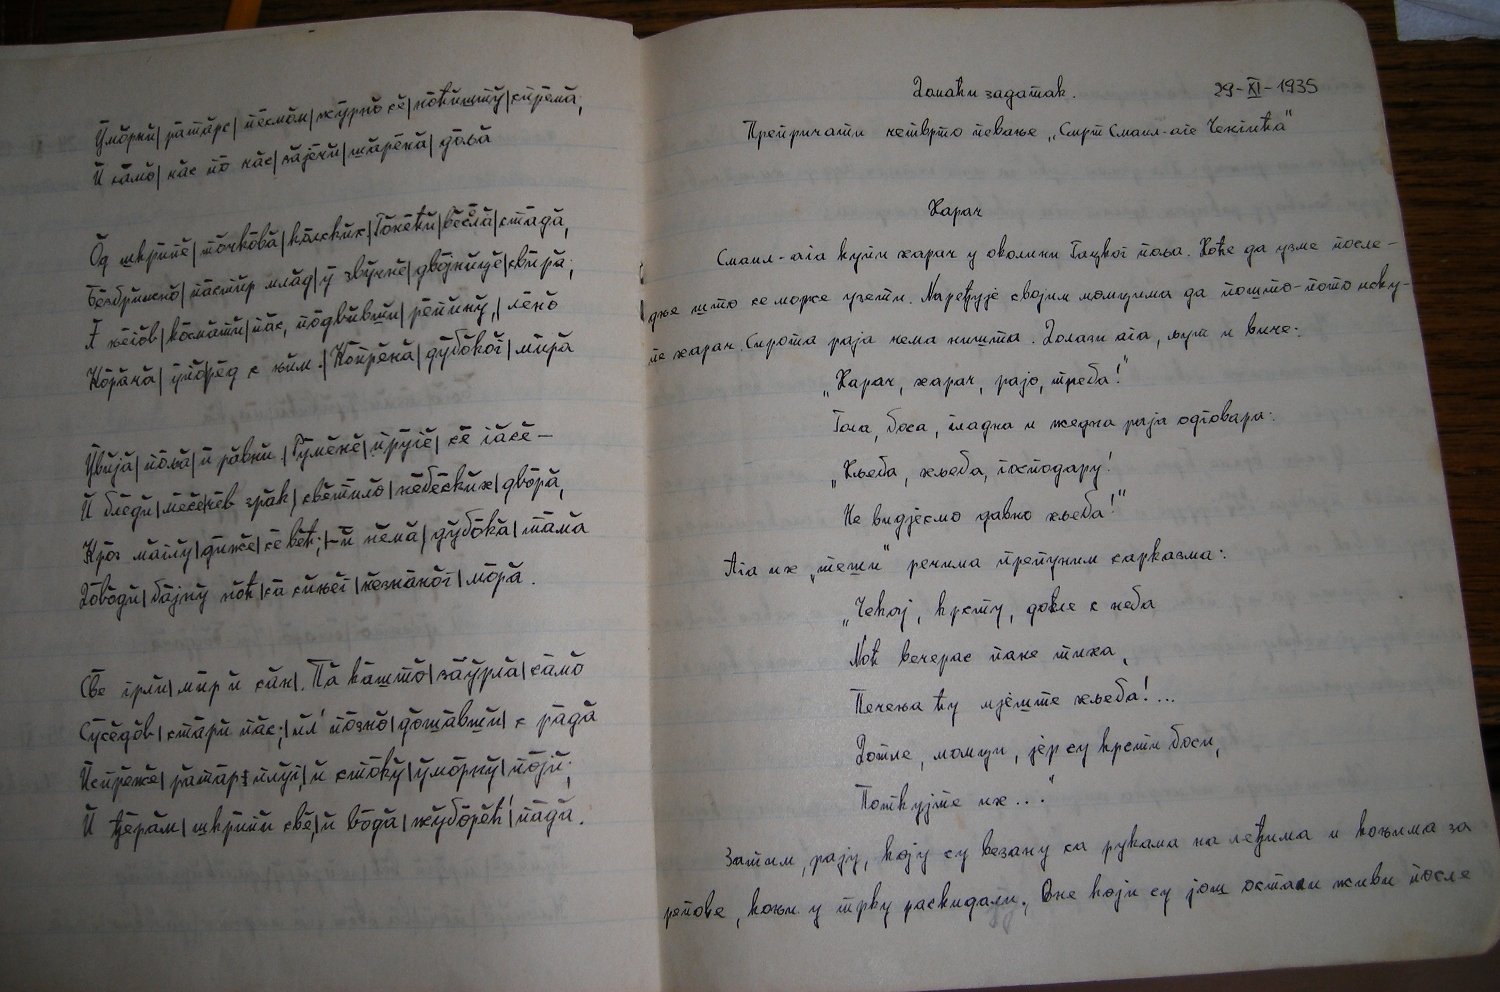 Уморни| ратарс| песмом| журно се| повишту| спрема;
И само| кас по кас| зајечи| шарена| доља
Од шкрипе| точкова| колских| Гонећи| весела| стада,
Безбрижно| пастир млад| у звучне| двојнице| свира;
А његов| космати| пас, подвивши| репину,| лено
Корача| упоред с њим.| Копрена| дубоког| мира
Увија| поља| и равни.| Румене| пруге| се гасе—
И бледи| месечев зрак| светило| небеских| двора,
Кроз маглу| диже| се већ;|—и нема| дубока| тама
Доводи| бајну ноћ| са сињег| незнаног| мора.
Све грли| мир и сан|. Па кашто| заурла| само
Суседов| стари пас;| ил' позно| дошавши| с рада
Испреже| ратар| плуг,| и стоку| уморну| поји;
И ђерам| шкрипи све,| и вода| жуборећ'| пада.
Домаћи задатак. 29-XI-1935
Препричати четврто певање „Смрт Смаил-аге Ченгића"
Харач
Смаил-ага купи харач у околини Гацког поља. Хоће да узме после-
дње што се може узети. Наређује својим момцима да пошто-пото иску-
пе харач. Сирота раја нема ништа. Долази ага, љут и виче:
„Харач, харач, рајо, треба!"
Гола, боса, гладна и жедна раја одговара:
„Хљеба, хљеба, господару!
Не видјесмо давно хљеба!"
Ага их „теши" речима препуним сарказма:
„Чекај, крсту, докле с неба
Ноћ вечерас пане тиха,
Печења ћу мјеште хљеба!...
Дотле, момци, јер су крсти боси,
Поткујте их..."
Затим, рају, коју су везану са рукама на леђима и коњима за
репове, коњи у трку раскидали. Оне који су још остали живи после